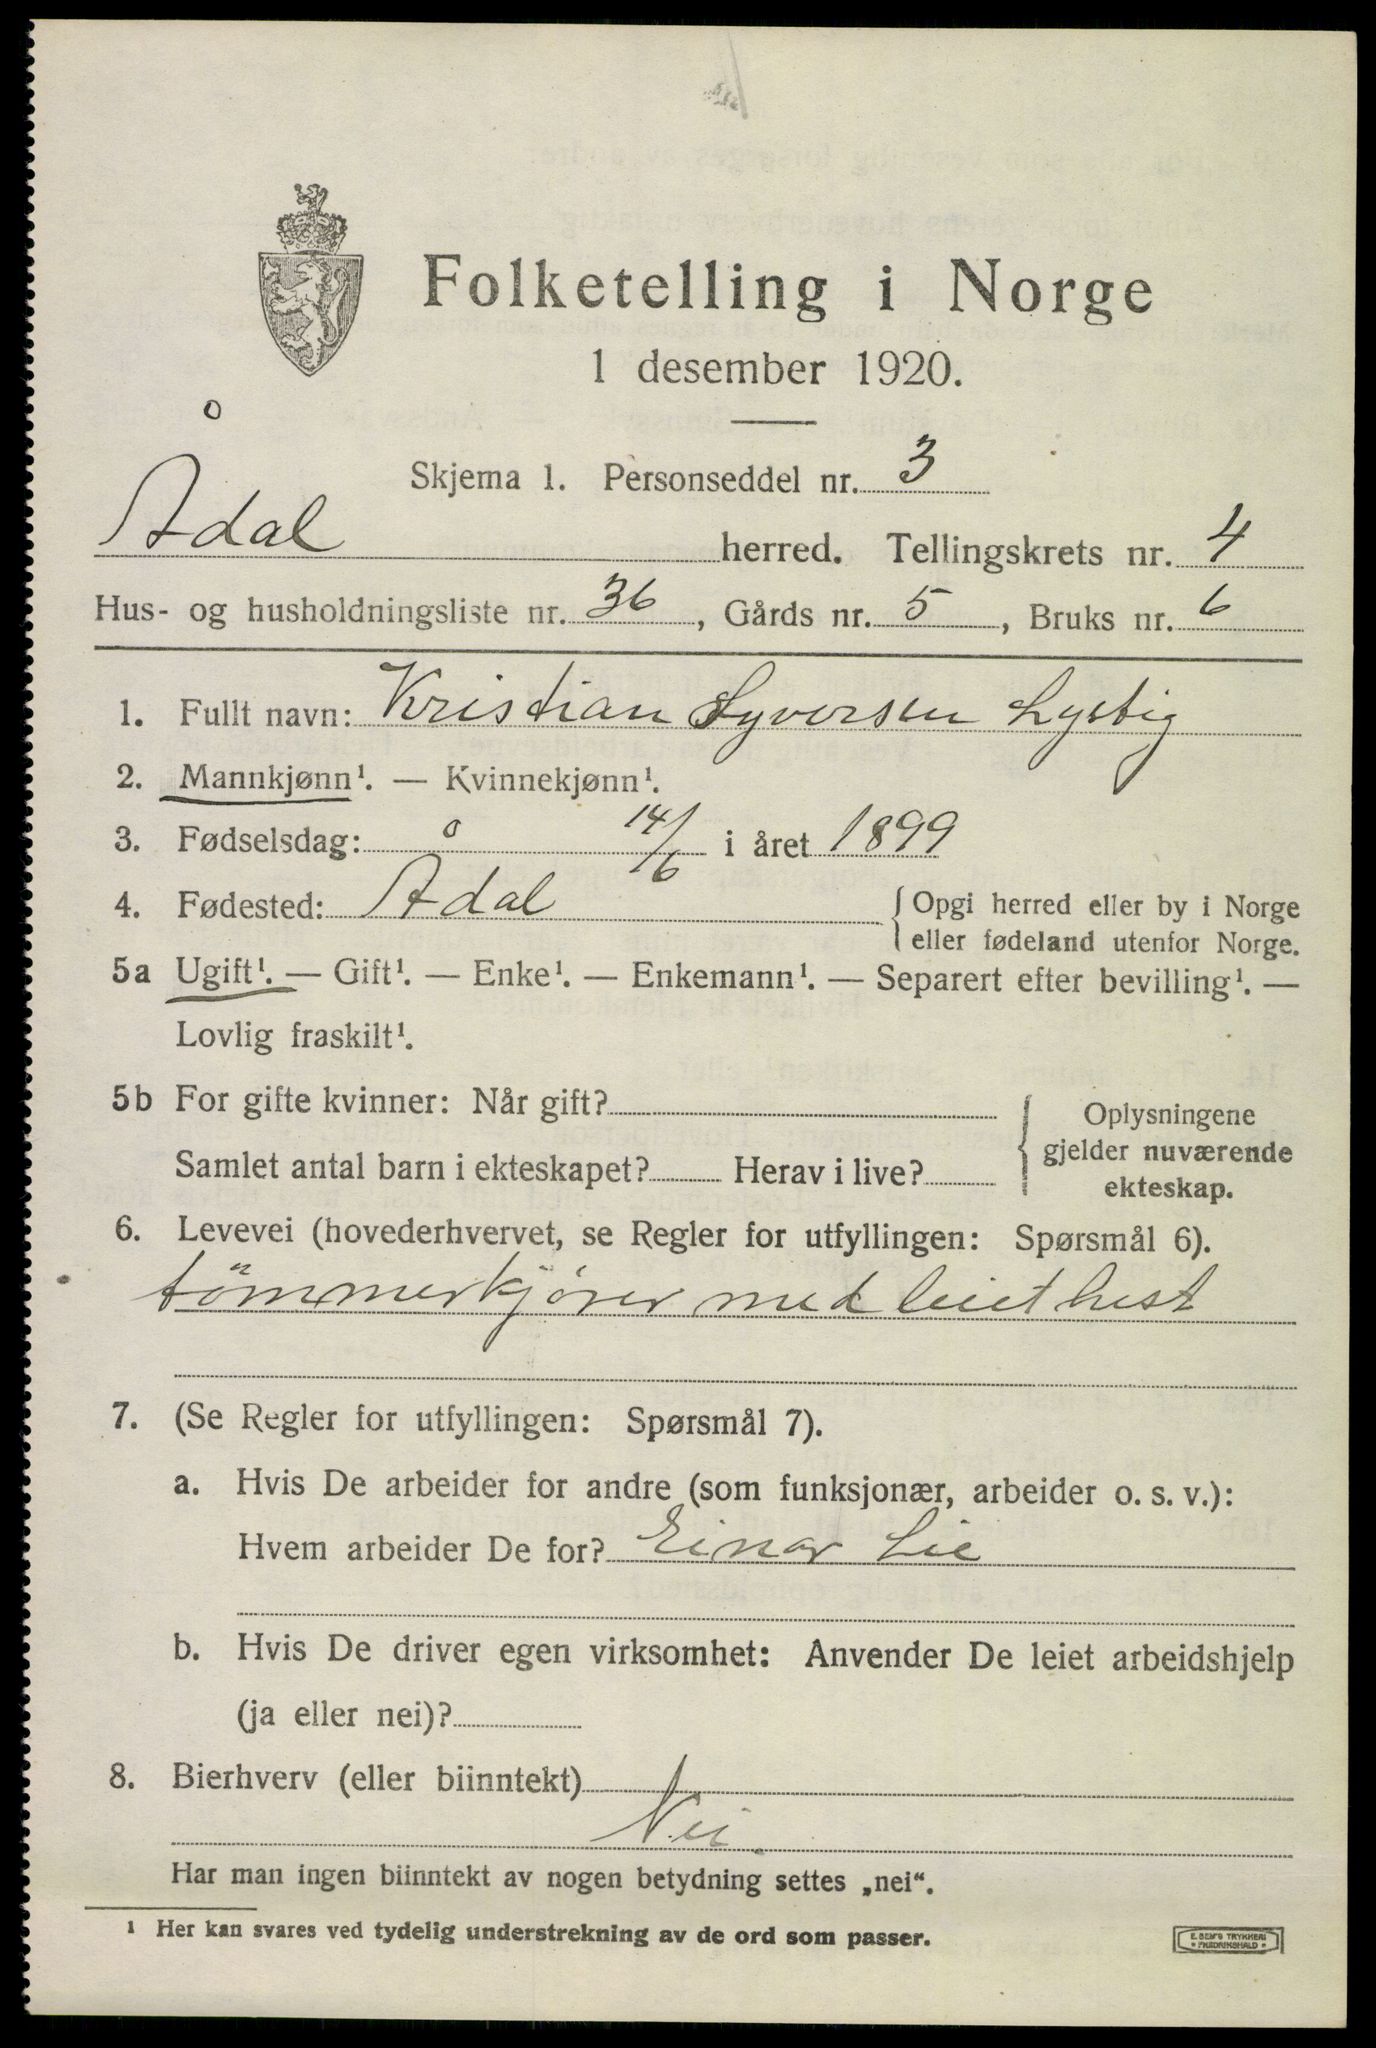 Folketelling i Norge
1 desember 1920.
Skjema 1. Personseddel nr. 3
Ådal herred. Tellingskrets nr. 4
Hus- og husholdningsliste nr. 36, Gårds nr. 5, Bruks nr. 6
1. Fullt navn: Kristian Syversen Lystig
2. Mannkjønn¹. — Kvinnekjønn¹.
3. Fødselsdag: 14/6 i året 1899
4. Fødested: Ådal { Opgi herred eller by i Norge
eller fødeland utenfor Norge.
5a Ugift¹. — Gift¹. — Enke¹. — Enkemann¹. — Separert efter bevilling¹. —
Lovlig fraskilt¹.
5b For gifte kvinner: Når gift? { Oplysningene
gjelder nuværende
ekteskap.
Samlet antal barn i ekteskapet? Herav i live?
6. Levevei (hovederhvervet, se Regler for utfyllingen: Spørsmål 6).
tömmerkjører med leiet hest
7. (Se Regler for utfyllingen: Spørsmål 7).
a. Hvis De arbeider for andre (som funksjonær, arbeider o. s. v.):
Hvem arbeider De for? Einar Lie
b. Hvis De driver egen virksomhet: Anvender De leiet arbeidshjelp
(ja eller nei)?
8. Bierhverv (eller biinntekt)
Nei
Har man ingen biinntekt av nogen betydning settes „nei“.
¹ Her kan svares ved tydelig understrekning av de ord som passer.
E. SEM'S TRYKKERI
• FREDRIKSHALD •